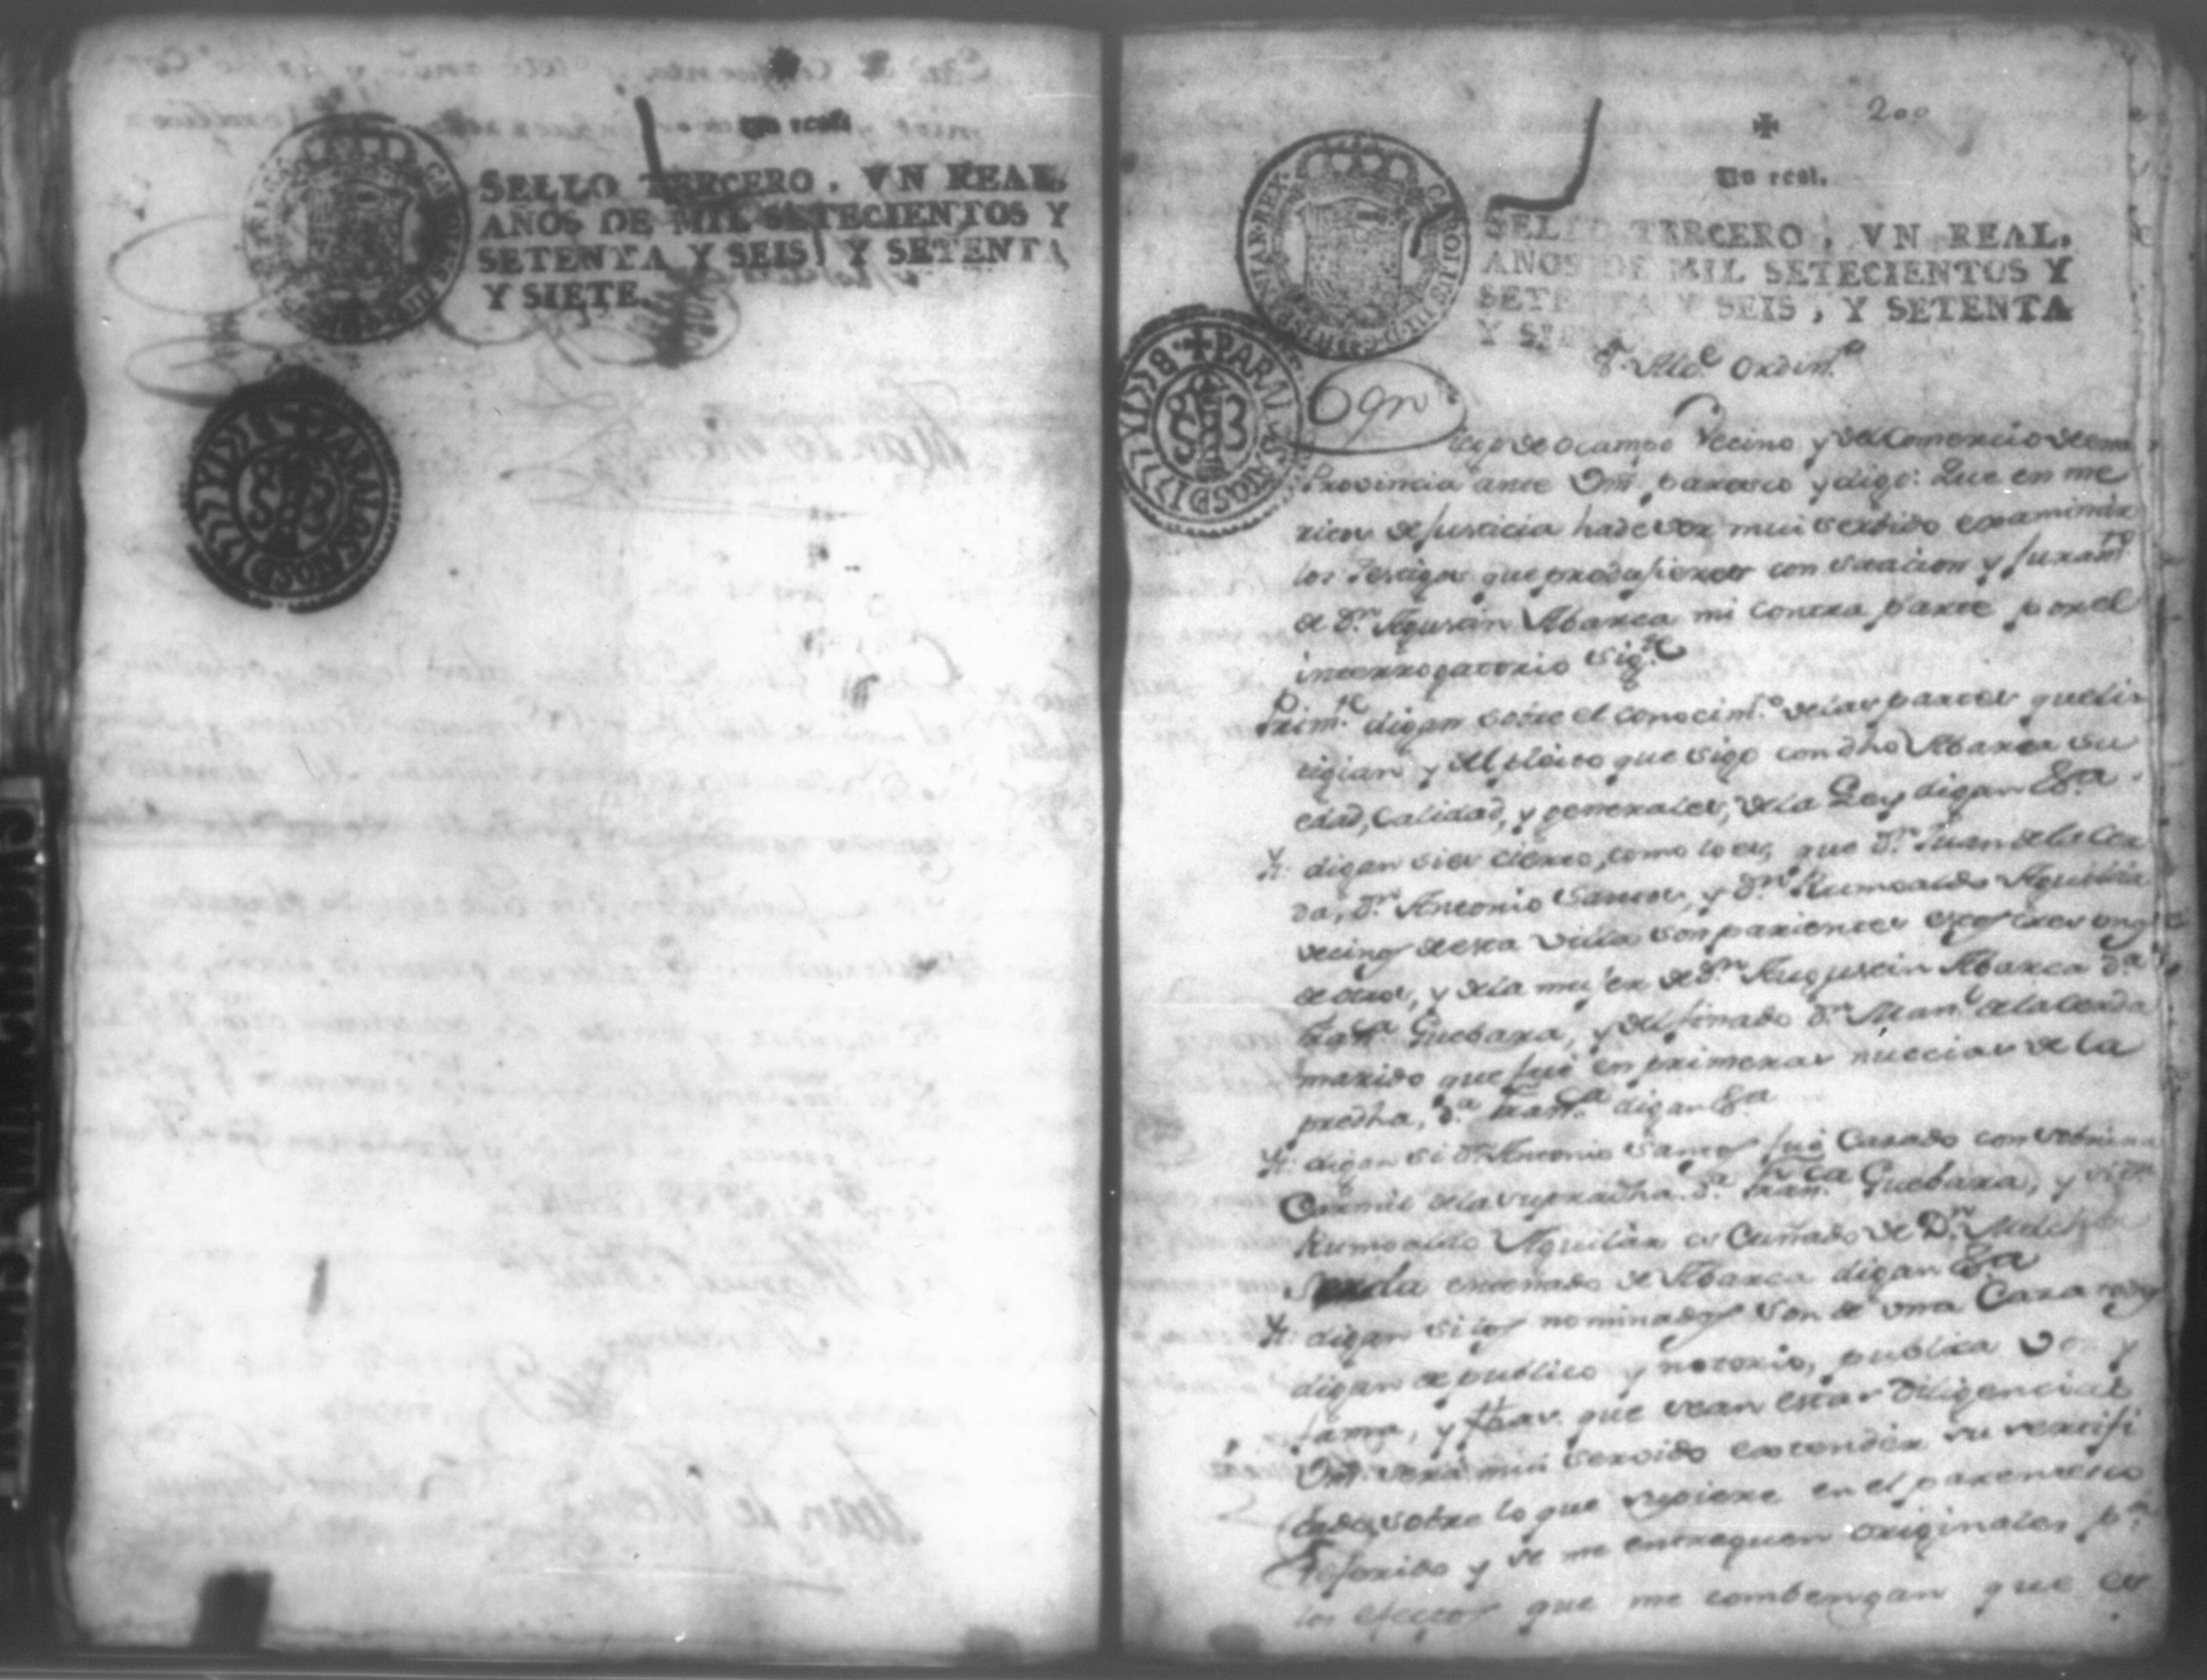 Un real.
SELLO TERCERO, VN REAL,
AÑOS DE MIL SETECIENTOS Y
SETENTA Y SEIS, Y SETENTA
Y SIETE.
PARA LOS AÑOS D 1777 Y 78
200
Un real.
CAROLUS III D G HISPANIAR REX
SELLO TERCERO, VN REAL,
AÑOS DE MIL SETECIENTOS Y
SETENTA Y SEIS, Y SETENTA
Y SIETE
PARA LOS AÑOS D 1777 Y 78
Sr. Alcde. Ordino.
Diego de Ocampo Vecino y del Comercio de esta
Provincia ante Vm. paresco y digo: Que en me
ritos de Justicia hade ser mui serbido examinar
los testigos que produsiere con citacion y Juramto.
de Dn. Agustin Abarca mi contra parte por el
interrogatorio sigte.
Primte. digan sobre el conocimto. de las partes que li
tigian y del pleito que sigo con dho Abarca su
edad, calidad, y generales, de la Ley digan &a.
Yt. digan si es cierto, como lo es, que Dn. Juan de la Cer
da, Dn. Antonio Santos, y Dn. Rumoaldo Aguilar
vecinos de esta Villa son parientes estos tres unos
de otros, y de la mujer de Dn. Augustin Abarca Da.
Franca. Guebara, y del finado Dn. Manl. de la Cerda
marido que fué en primeras nuccias de la
predha, Da. Franca. digan &a
Yt. digan si Dn. Antonio Santos fué Casado con sobrina
Carnal de la supradha. Da. Franca. Guebara, y si Dn.
Rumoaldo Aguilar es Cuñado de Dn. Melchor
Serda entenado de Abarca digan &a
Yt. digan si los nominados son de una Casa todos
digan de publico y notorio, publica voz y
fama, y fhas. que sean estas diligencias
Vm. será mui servido extender su sertifi
cado, sobre lo que supiere en el parentesco
referido y se me entreguen originales pa.
los efectos que me combengan que es